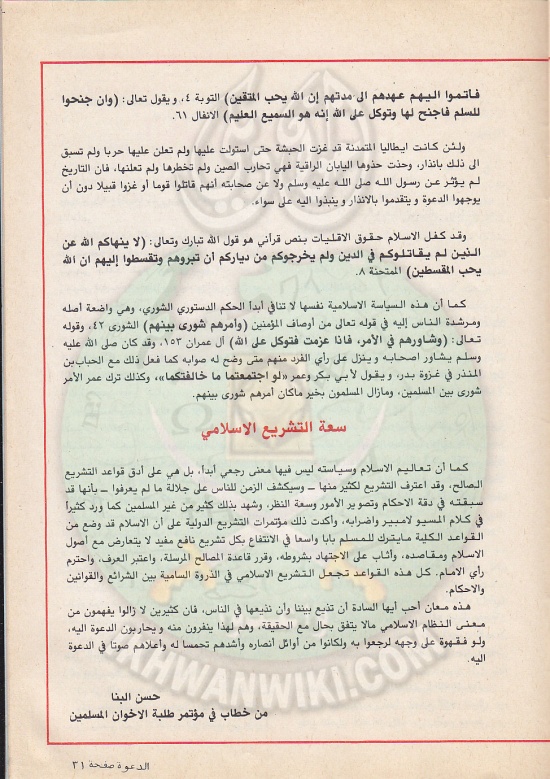 فـاتمـوا اليـهم عـهدهم الى مدتهم إن الله يحب المتقين) التوبة ٤، ويقول تعالى: (وان جنحوا
للسلم فاجنح لها وتوكل على الله إنه هو السميع العليم) الانفال ٦١.
ولـئن كـانت ايطاليا المتمدنة قد غزت الحبشة حتى استولت عليها ولم تعلن عليها حربا ولم تسبق
الى ذلـك بانذار، وحذت حذوها اليابان الراقية فهي تحارب الصين ولم تخطرها ولم تعلنها، فان التاريخ
لـم يـؤثـر عـن رسـول الله صلى الله عليه وسلم ولا عن صحابته أنهم قاتلوا قوما أو غزوا قبيلا دون أن
يوجهوا الدعوة و يتقدموا بالانذار و ينبذوا اليه على سواء.
وقـد كـفل الاسـلام حقـوق الاقليـات بـنص قرآني هو قول الله تبارك وتعالى: (لا ينهاكم الله عن
الـذين لـم يـقـاتـلـوكـم في الدين ولم يخرجوكم من دياركم أن تبروهم وتقسطوا إليهم ان الله
يحب المقسطين) الممتحنة ٨.
كـما أن هـذه السيـاسة الاسلامية نفسها لا تنافي أبدا الحكم الدستوري الشوري، وهي واضعة أصله
ومـرشدة النـاس إليه في قوله تعالى من أوصاف المؤمنين (وأمرهم شورى بينهم) الشورى ٤٢، وقوله
تـعـالى: (وشاورهم في الأمر، فاذا عزمت فتوكل على الله) آل عمران ١٥٣، وقد كان صلى الله عليه
وسـلـم يشـاور اصحـابه و ينزل على رأي الفرد منهم متى وضح له صوابه كما فعل ذلك مع الحباب بن
المـنذر في غـزوة بدر، و يقـول لأبي بكر وعمر «لو اجتمعتما ما خالفتكما»، وكذلك ترك عمر الأمر
شورى بين المسلمين، ومازال المسلمون بخير ماكان أمرهم شورى بينهم.
سعة التشريع الاسلامي
كـما أن تـعـاليـم الاسـلام وسياسته ليس فيها معنى رجعي أبدا، بل هي على أدق قواعد التشريع
الصالح، وقد اعترف التشريع لكثير منها ــ وسيكشف الزمن للناس على جلالة ما لم يعرفوا ــ بأنها قد
سبقته في دقة الاحكام وتصوير الأمور وسعة النظر، وشهد بذلك كثير من غير المسلمين كما ورد كثيراً
في كـلام المسيـو لامبير واضرابه، وأكدت ذلك مؤتمرات التشريع الدولية على أن الاسلام قد وضع من
القواعد الكلية مايترك للمسلم بابا واسعا في الانتفاع بكل تشريع نافع مفيد لا يتعارض مع أصول
الاسلام ومقاصده، وأثاب على الاجتهاد بشروطه، وقرر قاعدة المصالح المرسلة. واعتبر العرف، واحترم
رأي الامام. كـل هـذه القـواعد تجعل التشريع الاسلامي في الذروة السامية بين الشرائع والقوانين
والاحكام.
هـذه مـعان أحب أيها السادة أن تذيع بيننا وأن نذيعها في الناس، فان كثيرين لا زالوا يفهمون من
معنـى النظام الاسلامي مالا يتفق بحال مع الحقيقة، وهم لهذا ينفرون منه و يحاربون الدعوة اليه،
ولـو فـقهوة على وجهه لرجعوا به ولكانوا من أوائل أنصاره وأشدهم تحمسا له وأعلاهم صوتا في الدعوة
اليه.
حسن البنا
من خطاب في مؤتمر طلبة الاخوان المسلمين
IKHWANWIKI.COM
الدعوة صفحة ٣١